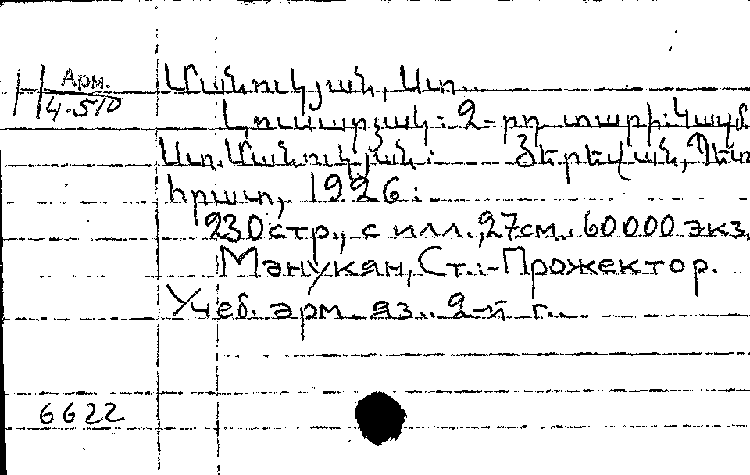 Н Арм.
4-510
Մանուկյան, Ստ.
Լուսարձակ: 2-րդ տարի: Կազմ
Ստ. Մանուկյան: Յերեվան, Պետ
հրատ, 1926:
230 стр., с илл., 27см. 60000 экз.
Манукян, Ст.:-Прожектор.
Учеб. арм. яз. 2-й г.
6622